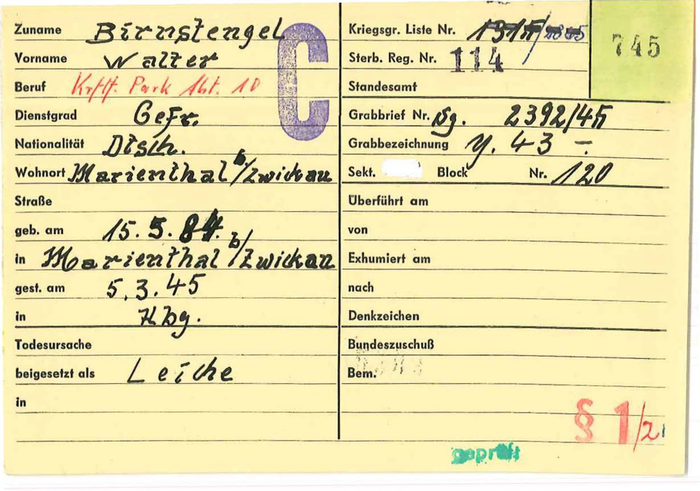 Zuname Birnstengel
Vorname Walter
Beruf Krff. Park Abt. 10
Dienstgrad Gefr.
Nationalität Dtsch.
Wohnort Marienthal b/Zwickau
Straße
geb. am 15.5.84.
in Marienthal b/Zwickau
gest. am 5.3.45
in Hbg.
Todesursache
beigesetzt als Leiche
in
C
Kriegsgr. Liste Nr.
Sterb. Reg. Nr. 114
Standesamt
745
Grabbrief Nr. 2392/45
Grabbezeichnung y. 43 –
Sekt. Block Nr. 120
Überführt am
von
Exhumiert am
nach
Denkzeichen
Bundeszuschuß
Bem.
§ 1/21
geprüft